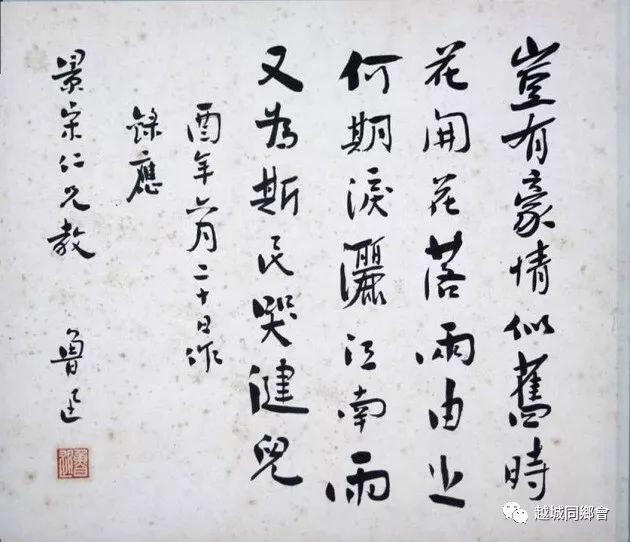 豈有豪情似舊時
花開花落兩由之
何期淚灑江南雨
又為斯民哭健兒
酉年六月二十日作
錄應
景宋仁兄教
魯迅
魯迅
越城同鄉會